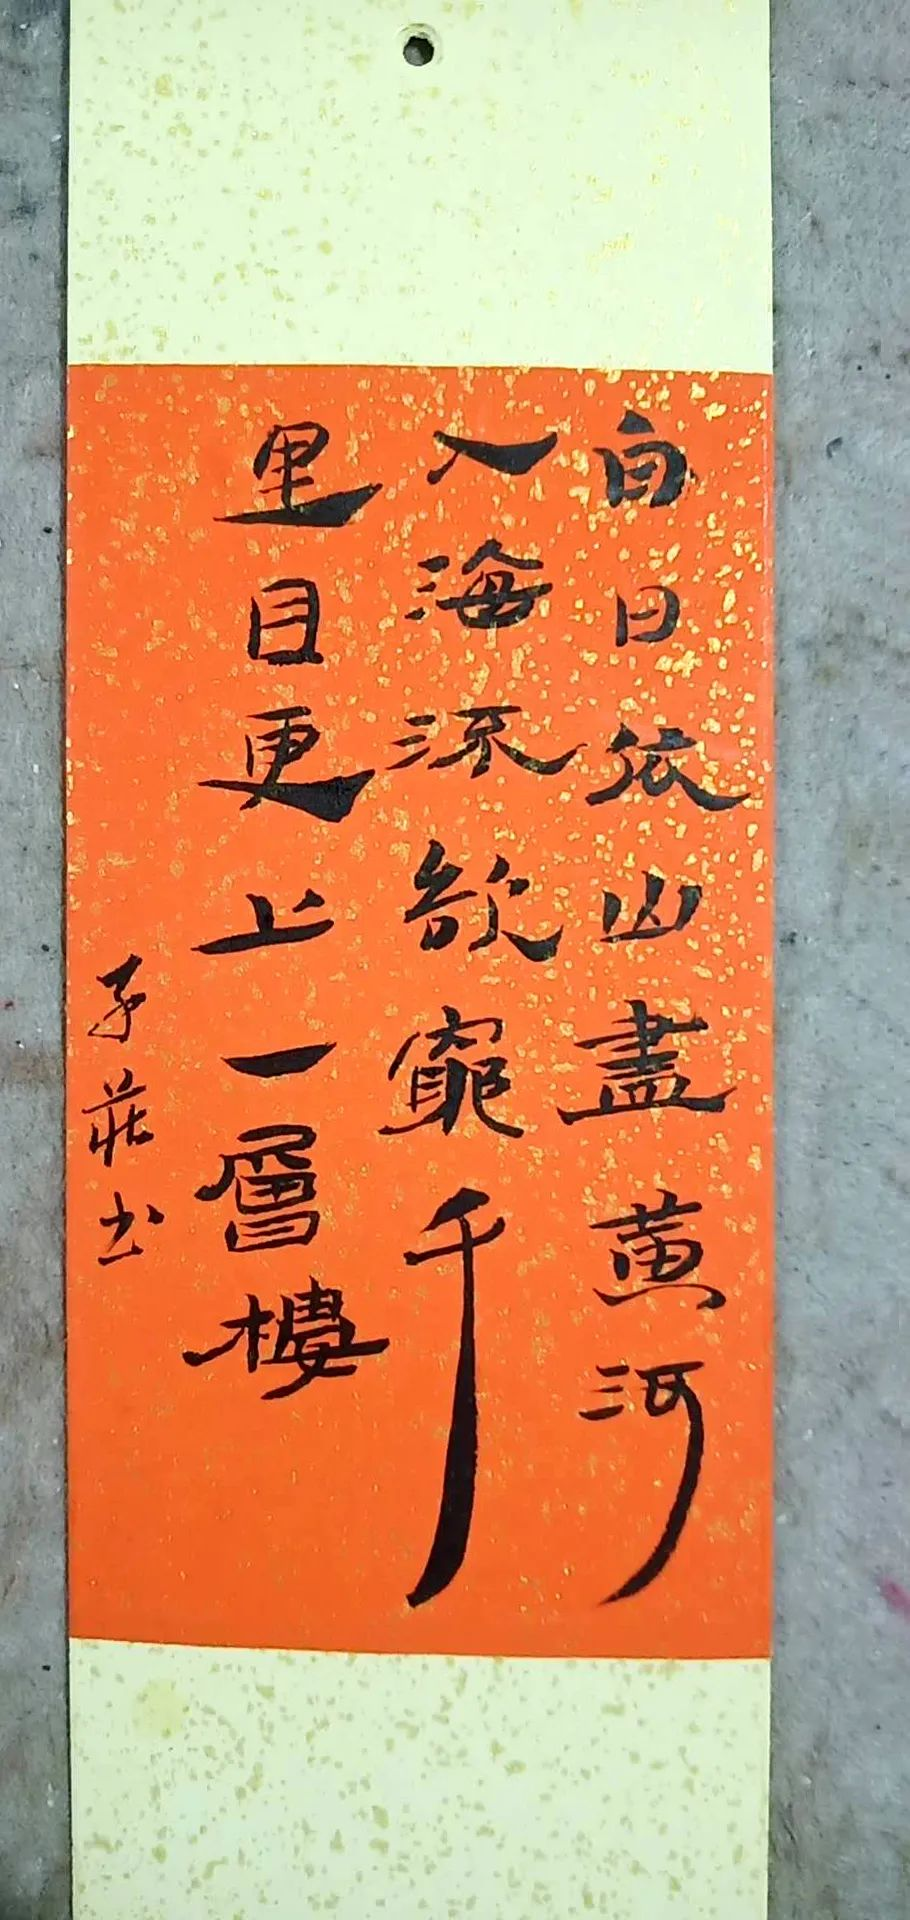 白日依山盡黄河
入海流欲窮千
里目更上一層樓
子莊书